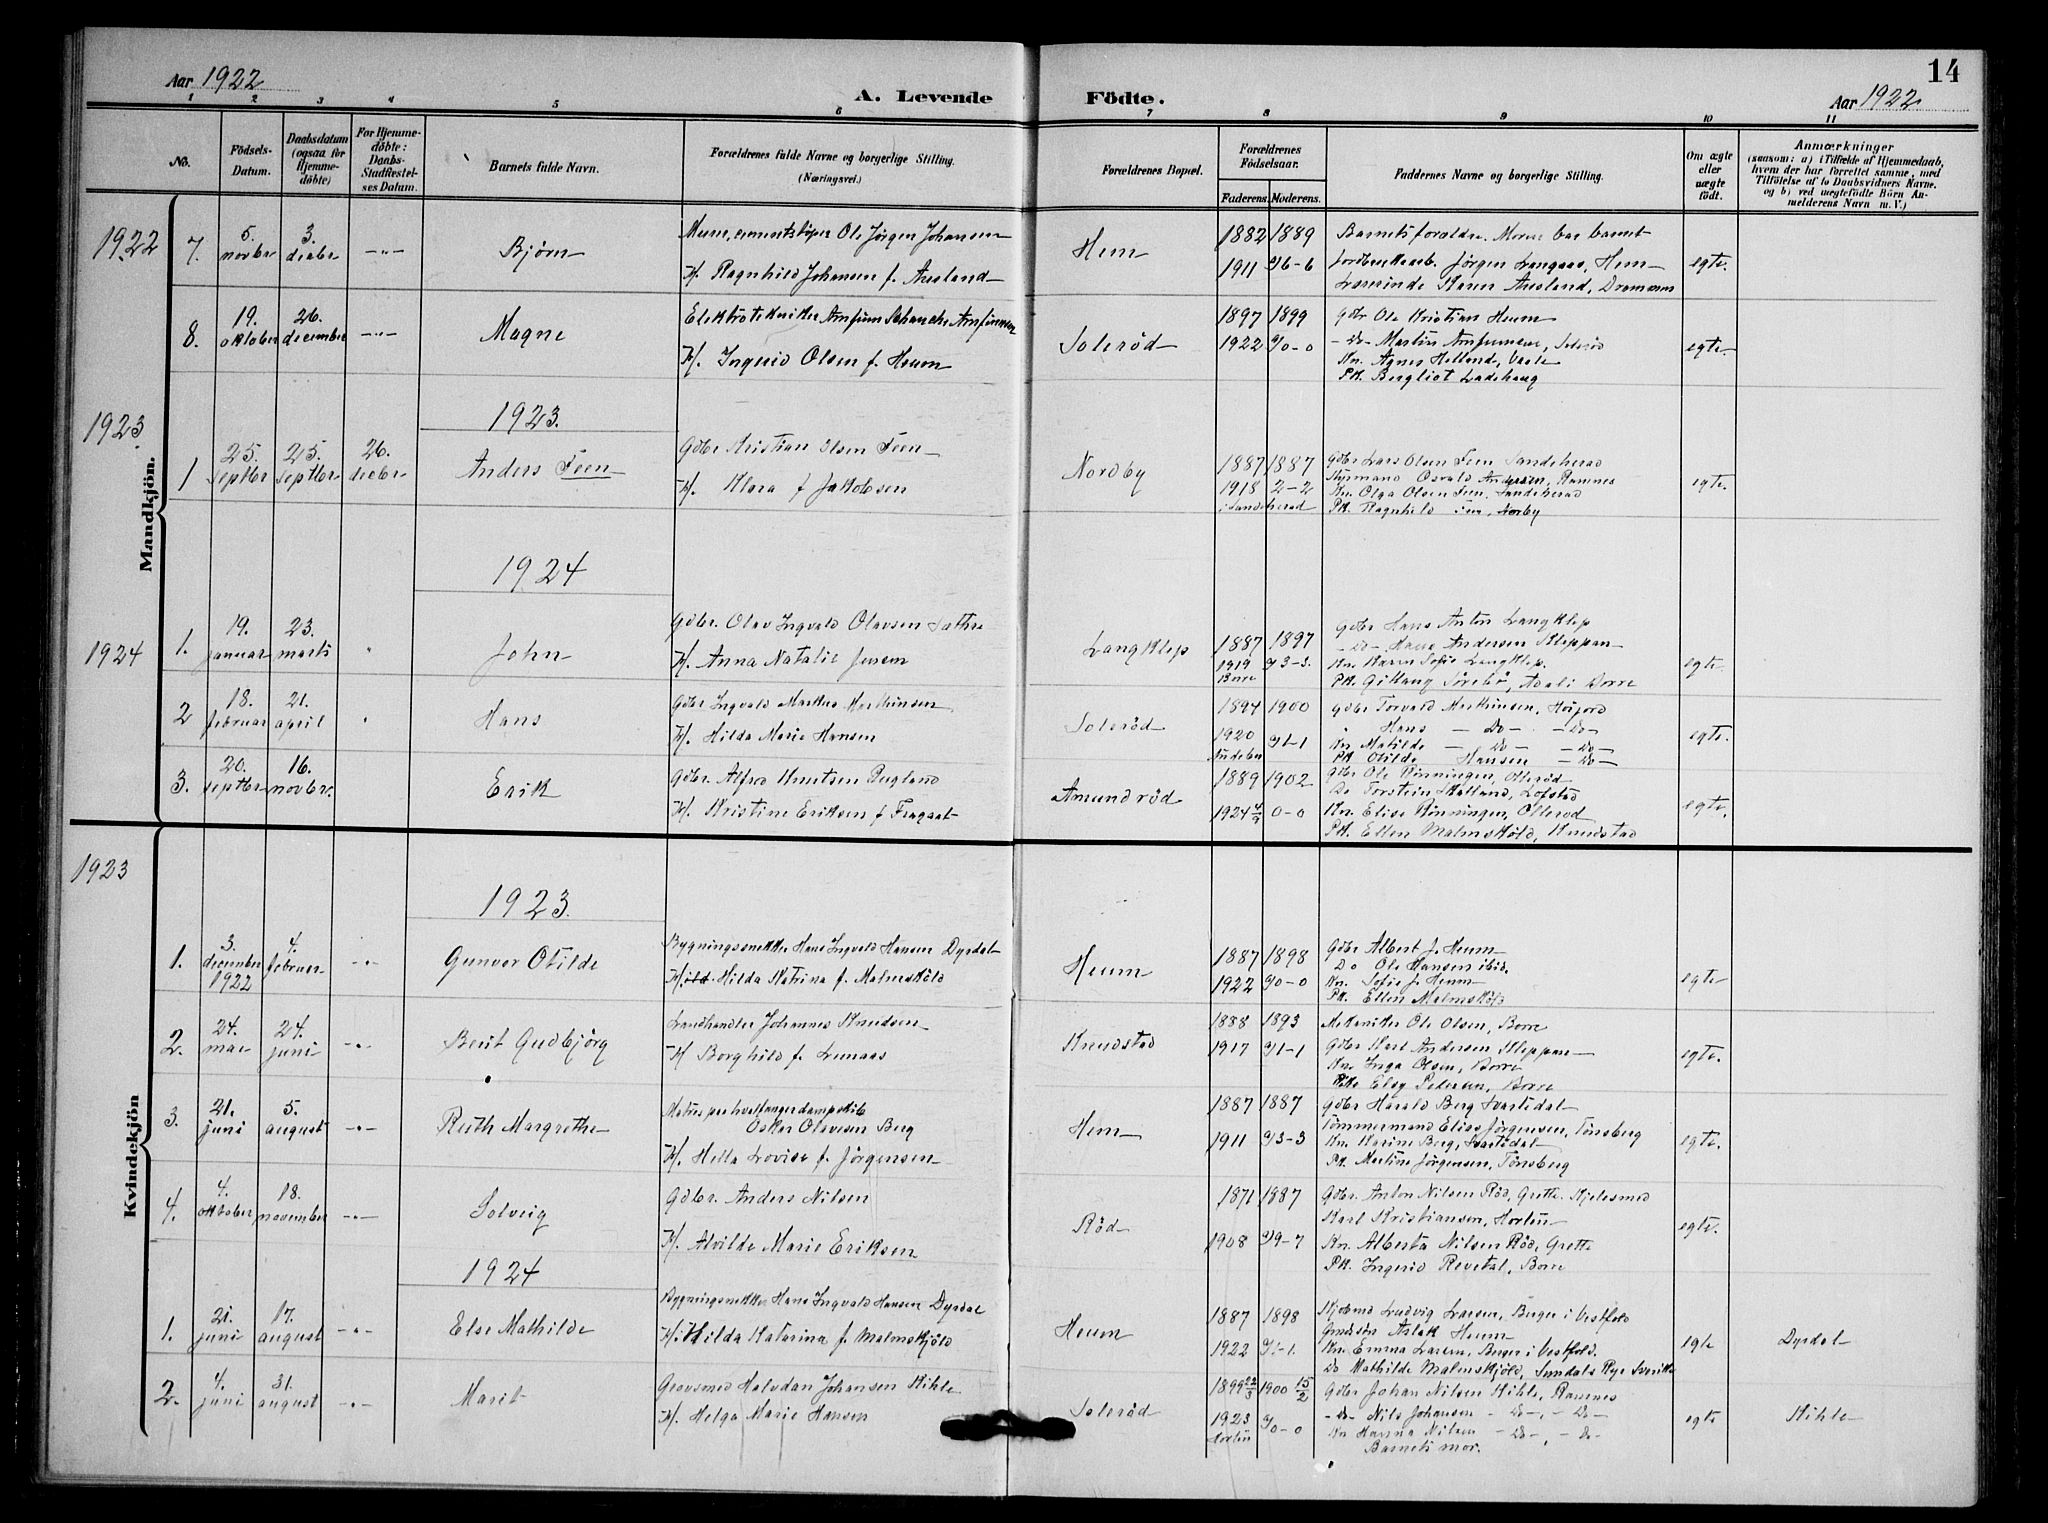 14
Aar 1922
A. Levende Födte.
Aar 1922
1 2 3 4 5 6 7 8 9 10 11
No.
Födsels-Datum.
Daabsdatum (ogsaa for Hjemme-döbte)
For Hjemme-döbte: Daabs-Stadfæstel-ses Datum.
Barnets fulde Navn.
Forældrenes fulde Navne og borgerlige Stilling.
(Næringsvei.)
Forældrenes Bopæl.
Forældrenes Födselsaar.
Faderens. Moderens.
Faddernes Navne og borgerlige Stilling.
Om ægte eller uægte födt.
Anmærkninger
(saasom: a) i Tilfælde af Hjemmedaab, hvem der har forrettet samme, med Tilföielse af to Daabsvidners Navne. og b) ved uegtefödte Börn An-melderens Navn m. V.)
Mandkjön.
1922
7. 5. novbr 3. decbr -"- Bjørn
Ole Jørgen Johansen
H. Ragnhild Johansen f. Aasland
Hem
1882 1889
1911 6-6
Barnets forældre. Moren bar barnet
Jørgen Langaas, Hem
Karen Aasland, Drammen
egte.
8. 19. oktober 26. december -"- Magne
Elektrotekniker Arnfinn Schanche Arnfinnsen
H. Ingerid Olsen f. Heum
Solerød
1897 1899
1922 0-0
Gdbr Ole Kristian Heum
-Do- Martin Arnfinnsen, Solerød
Kn. Agnes Helland, Vaale
Pk. Bergliot Ladehaug
egte.
1923
1923.
1 25. septbr 25. septbr 26. decbr Anders Feen
Gdbr Kristian Olsen Feen
H. Klara f Jakobsen
Nordby
1887 1887
1918 2-2
i Sandeherad
Gdbr Lars Olsen Feen Sandeherad
Styrmand Osvald Andersen, Ramnes
Kn. Olga Olsen Feen, Sandeherad
Pk. Ragnhild Norby
egte.
1924
1924
1. 19. januar 23. marts " John
Gdbr. Olav Ingvald Olavsen Sæthre
H. Anna Natalie Jensen
Langklep
1887 1897
1919 3-3.
Borre
Gdbr Hans Anton Langklep
-Do- Hans Andersen Kleppan
Kn. Karen Sofie Langklep.
Pk. Borre
egte.
2 18. februar 21. april " Hans
Gdbr Ingvald Markus Marthinsen
H. Hilda Marie Hansen
Solerød
1894 1900
1920 1-1
Andebu
Gdbr Torvard Marthinsen, Høijord
" Hans -Do- -Do-
Kn. Matilde -Do- -Do-
Pk Otilde Hansen -Do-
egte.
3. 20. septbr 16. novbr. Erik
Gdbr. Alfred Knutsen Bugland
H. Kristine Eriksen f
Amundrød
1889 1902
1924 0-0
Gdbr. Ole Rønningen, Ollerød
Do Torstein Skalland, Lofstad
Kn. Elise Rønningen, Ollerød
Pk. Ellen Malmsköld, Knudstad
egte.
Kvindekjön
1923
1923.
1. 3. december 1922 4. februar -"- Gunvor Otilde
Bygningssnekker Hans Ingvald Hansen Dyrdal
H. Hilda Katrina f. Malmsköld
Heum
1887 1898
1922 0-0
Gdbr Albert J. Heum
Do Ole Hansen ibid.
Kn. Sofie J. Heum
Pk. Ellen Malmsköld
egte
2. 24. mai 24. juni -"- Berit Gudbjörg
Landhandler Johannes Knudsen
H Borghild f. Lunaas
Knudstad
1888 1893
1917 1-1
Mekaniker Ole Olsen, Borre
Gdbr Karl Andersen Kleppan
Kn. Inga Olsen, Borre
Elsy Pedersen, Borre
egte.
3. 21. juni 5. august -"- Ruth Margrethe
Matros paa hvalfangerdampskib
Oskar Olavesen Berg
H. Hella Lovise f. Jörgensen
Hem
1887 1887
1911 3-3
Gdbr Harald Berg Svartedal
Tömmermand Elias Jörgensen, Tönsberg
Kn. Karine Berg, Svartedal
Pk. Martine Jörgensen, Tönsberg
egte.
4. 4. oktober 18. november -"- Solveig
Gdbr. Anders Nilsen
H. Alvilde Marie Eriksen
Röd
1871 1887
1908 9-7
Gdbr. Anton Nilsen Röd, Grette. Hjulsmed
Karl Kristiansen, Horten
Kn. Alberta Nilsen Röd, Grette
Pk. Ingerid Revetal, Borre
egte.
1924
1. 21. juni 17. august -"- Else Mathilde
Bygningssnekker Hans Ingvald Hansen Dyrdal
H. Hilda Katarina f. Malmskjöld
Heum
1887 1898
1922 1-1.
Ludvig Larsen, Berger i Vestfold
Aslak Heum
Kn. Emma Larsen, Berger i Vestfold.
Do Mathilde Malmskjöld, Sundals Rye Sverike
egte
Dyrdal
2. 4. juni 31. august -"- Marit
Grovsmed Halvdan Johansen Kihle
H. Helga Marie Hansen
Solerød
1899 22/3 1900 15/2
1923 0-0
Horten
Gdbr Johan Nilsen Kihle, Ramnes
-Do- Nils Johansen -Do-, -Do-
Kn Hanna Nilsen -Do-, -Do-
Barnets mor.
egte
Kihle